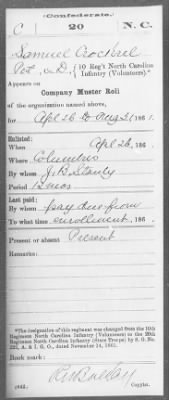 (Confederate.)
C 20 N. C.
Samuel
Pvt, Co. D, 10 Reg't North Carolina
Infantry (Volunteers).*
Appears on
Company Muster Roll
of the organization named above,
for Apl 26 to Aug 31, 1861.
Enlisted:
When April 26, 186 .
Where Columbus
By whom J. B. Stanly
Period 12 mos
Last paid:
By whom pay due from
To what time enrollment, 186 .
Present or absent Present
Remarks:
*The designation of this regiment was changed from the 10th
Regiment North Carolina Infantry (Volunteers) to the 20th
Regiment North Carolina Infantry (State Troops) by S. O. No.
222, A. & I. G. O., dated November 14, 1861.
Book mark:
(642)
Copyist.